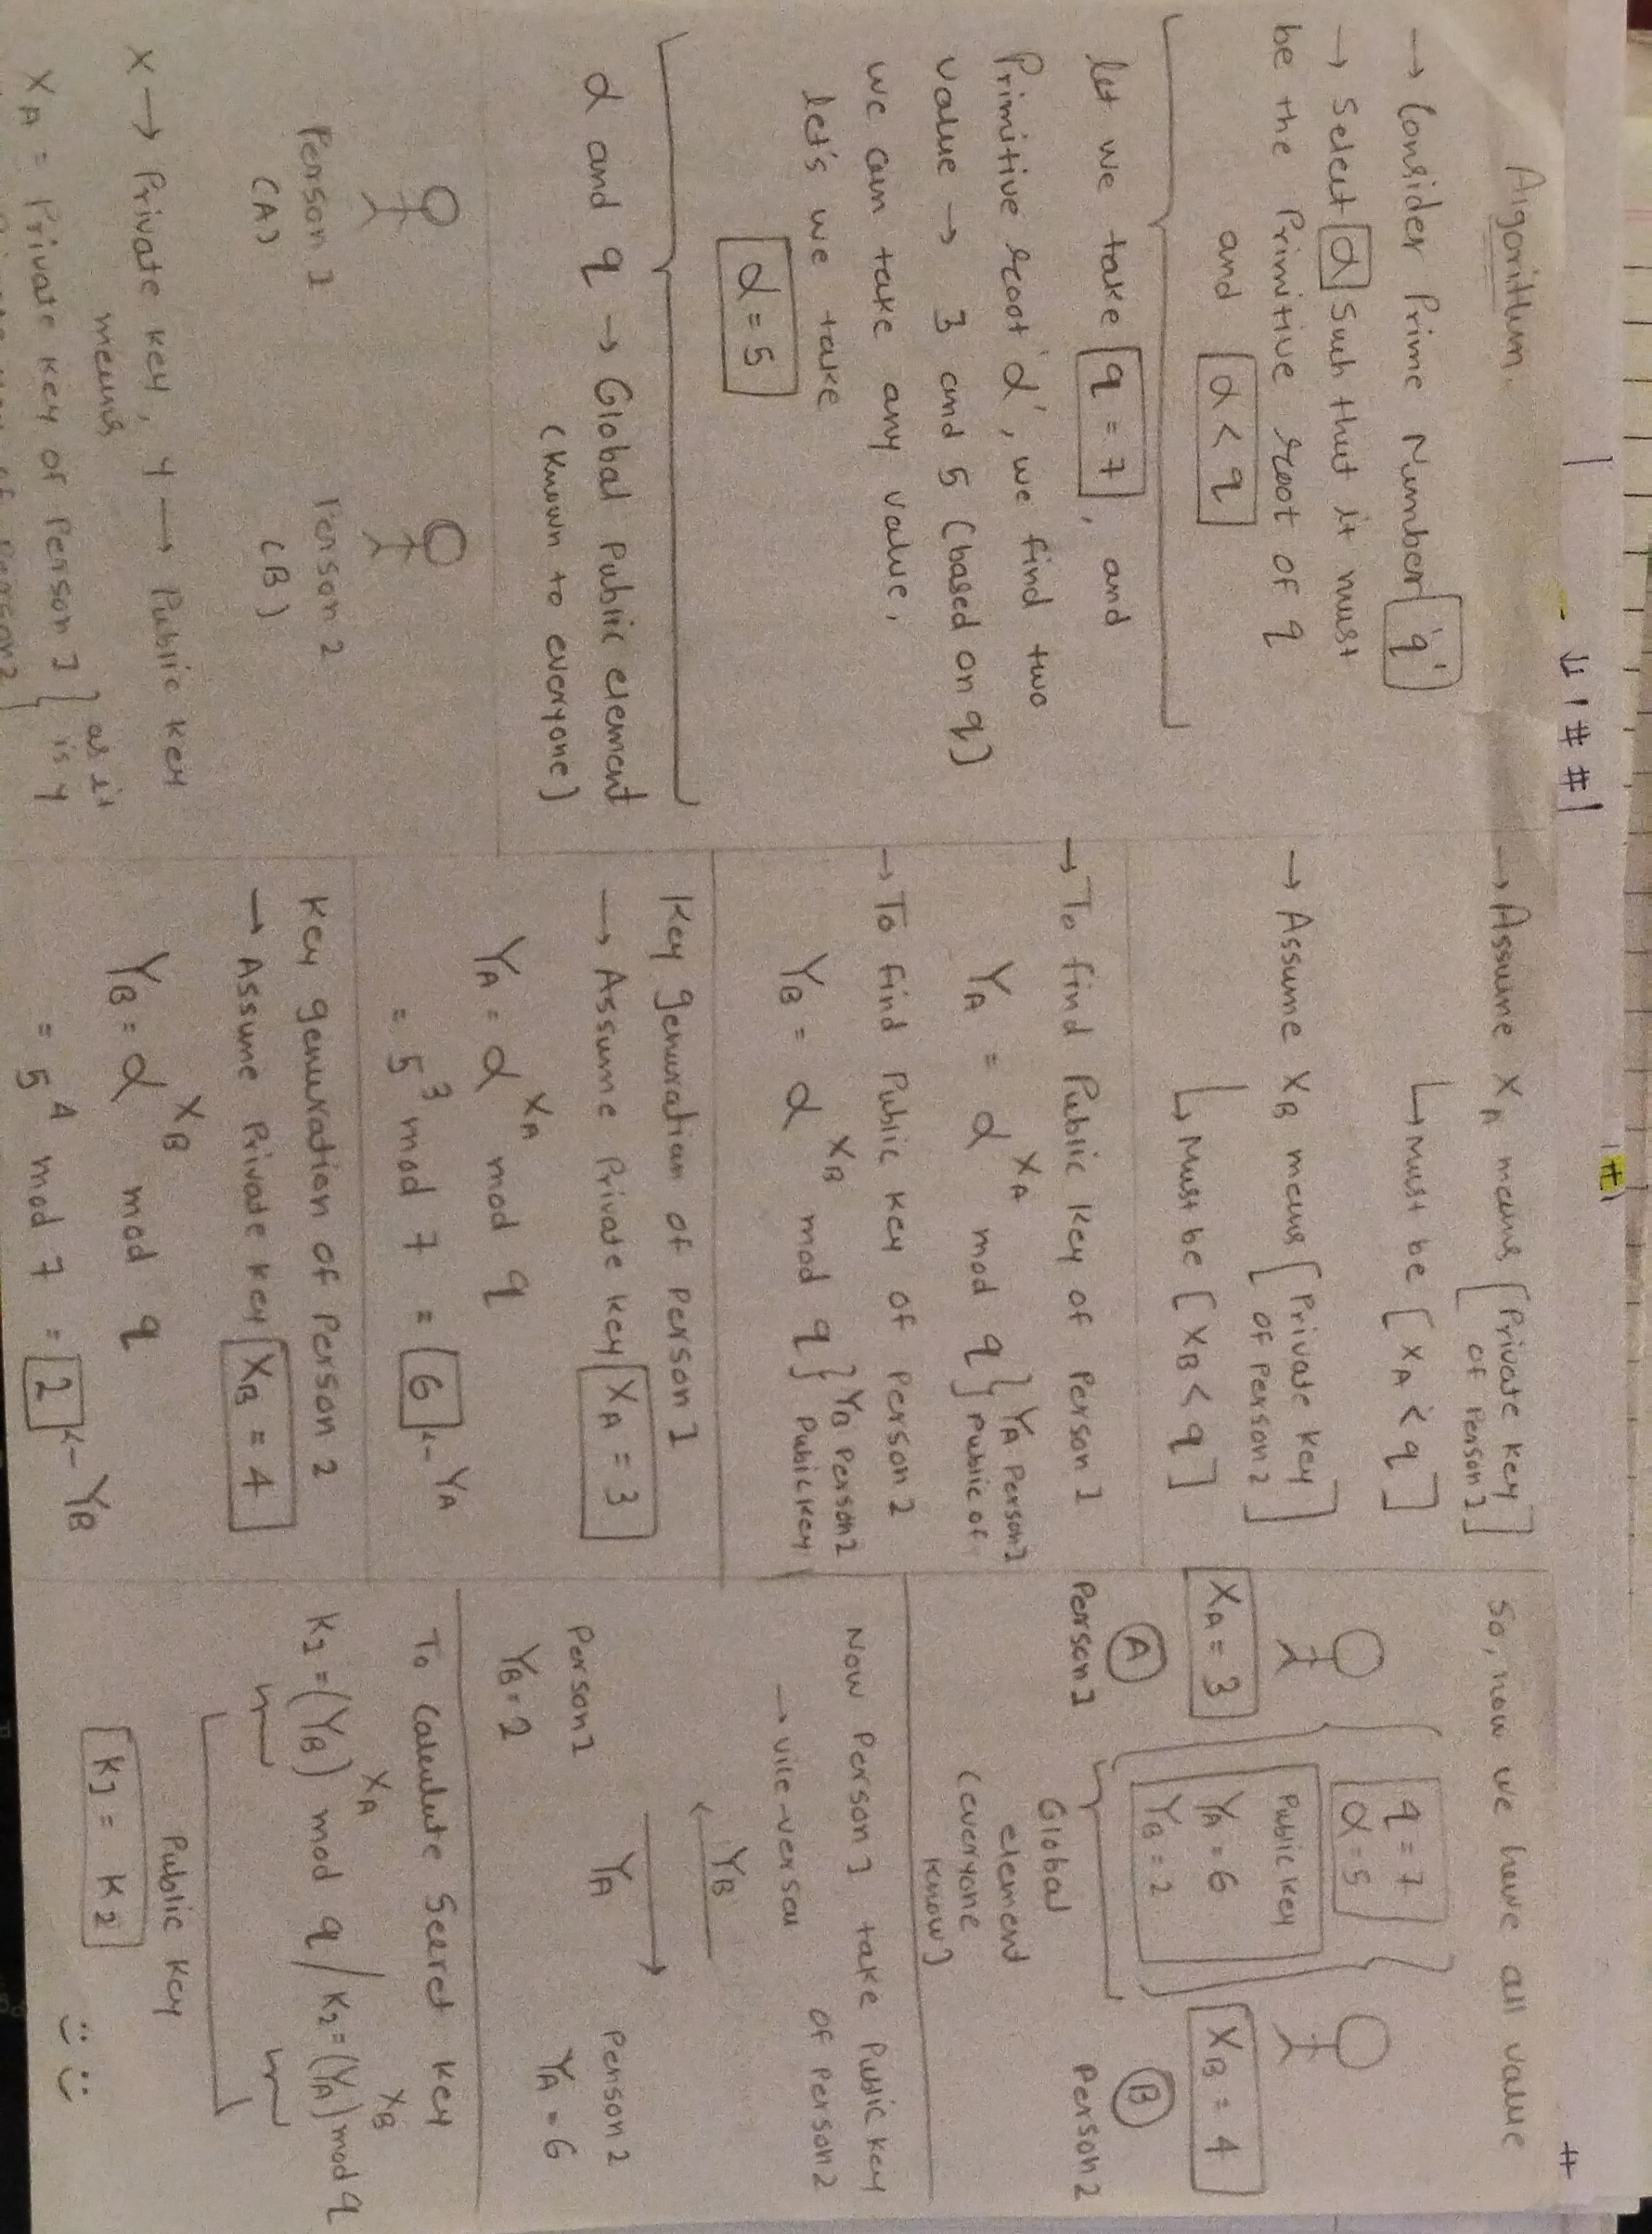 Algorithm.
→ Consider Prime Number 'q'
→ Select α such that it must
be the Primitive root of q
and α < q
let we take q = 7, and
Primitive root 'α', we find two
value → 3 and 5 (based on q)
we can take any value,
let's we take
α = 5
α and q → Global Public element
(Known to everyone)
Person 1 Person 2
(A) (B)
X → Private key, Y → Public key
means
XA = Private key of Person 1 } as it
is Y
→ Assume XA means [Private key
of Person 1]
↳ Must be [XA < q]
→ Assume XB means [Private key
of Person 2]
↳ Must be [XB < q]
→ To find Public key of Person 1
YA = α^XA mod q } YA Person 1
Public of
→ To find Public key of Person 2
YB = α^XB mod q } YB Person 2
Public key
Key generation of Person 1
→ Assume Private key XA = 3
YA = α^XA mod q
= 5^3 mod 7 = 6 ← YA
Key generation of Person 2
→ Assume Private key XB = 4
YB = α^XB mod q
= 5^4 mod 7 = 2 ← YB
So, now we have all value
q = 7
α = 5
XA = 3 Public key XB = 4
YA = 6
YB = 2
A B
Person 1 Person 2
Global
element
(everyone
know)
Now Person 1 take Public key
of Person 2
→ vice-versa
YB
Person 1 YA Person 2
YB = 2 YA = 6
To Calculate Secret key
K1 = (YB)^XA mod q / K2 = (YA)^XB mod q
Public key
K1 = K2